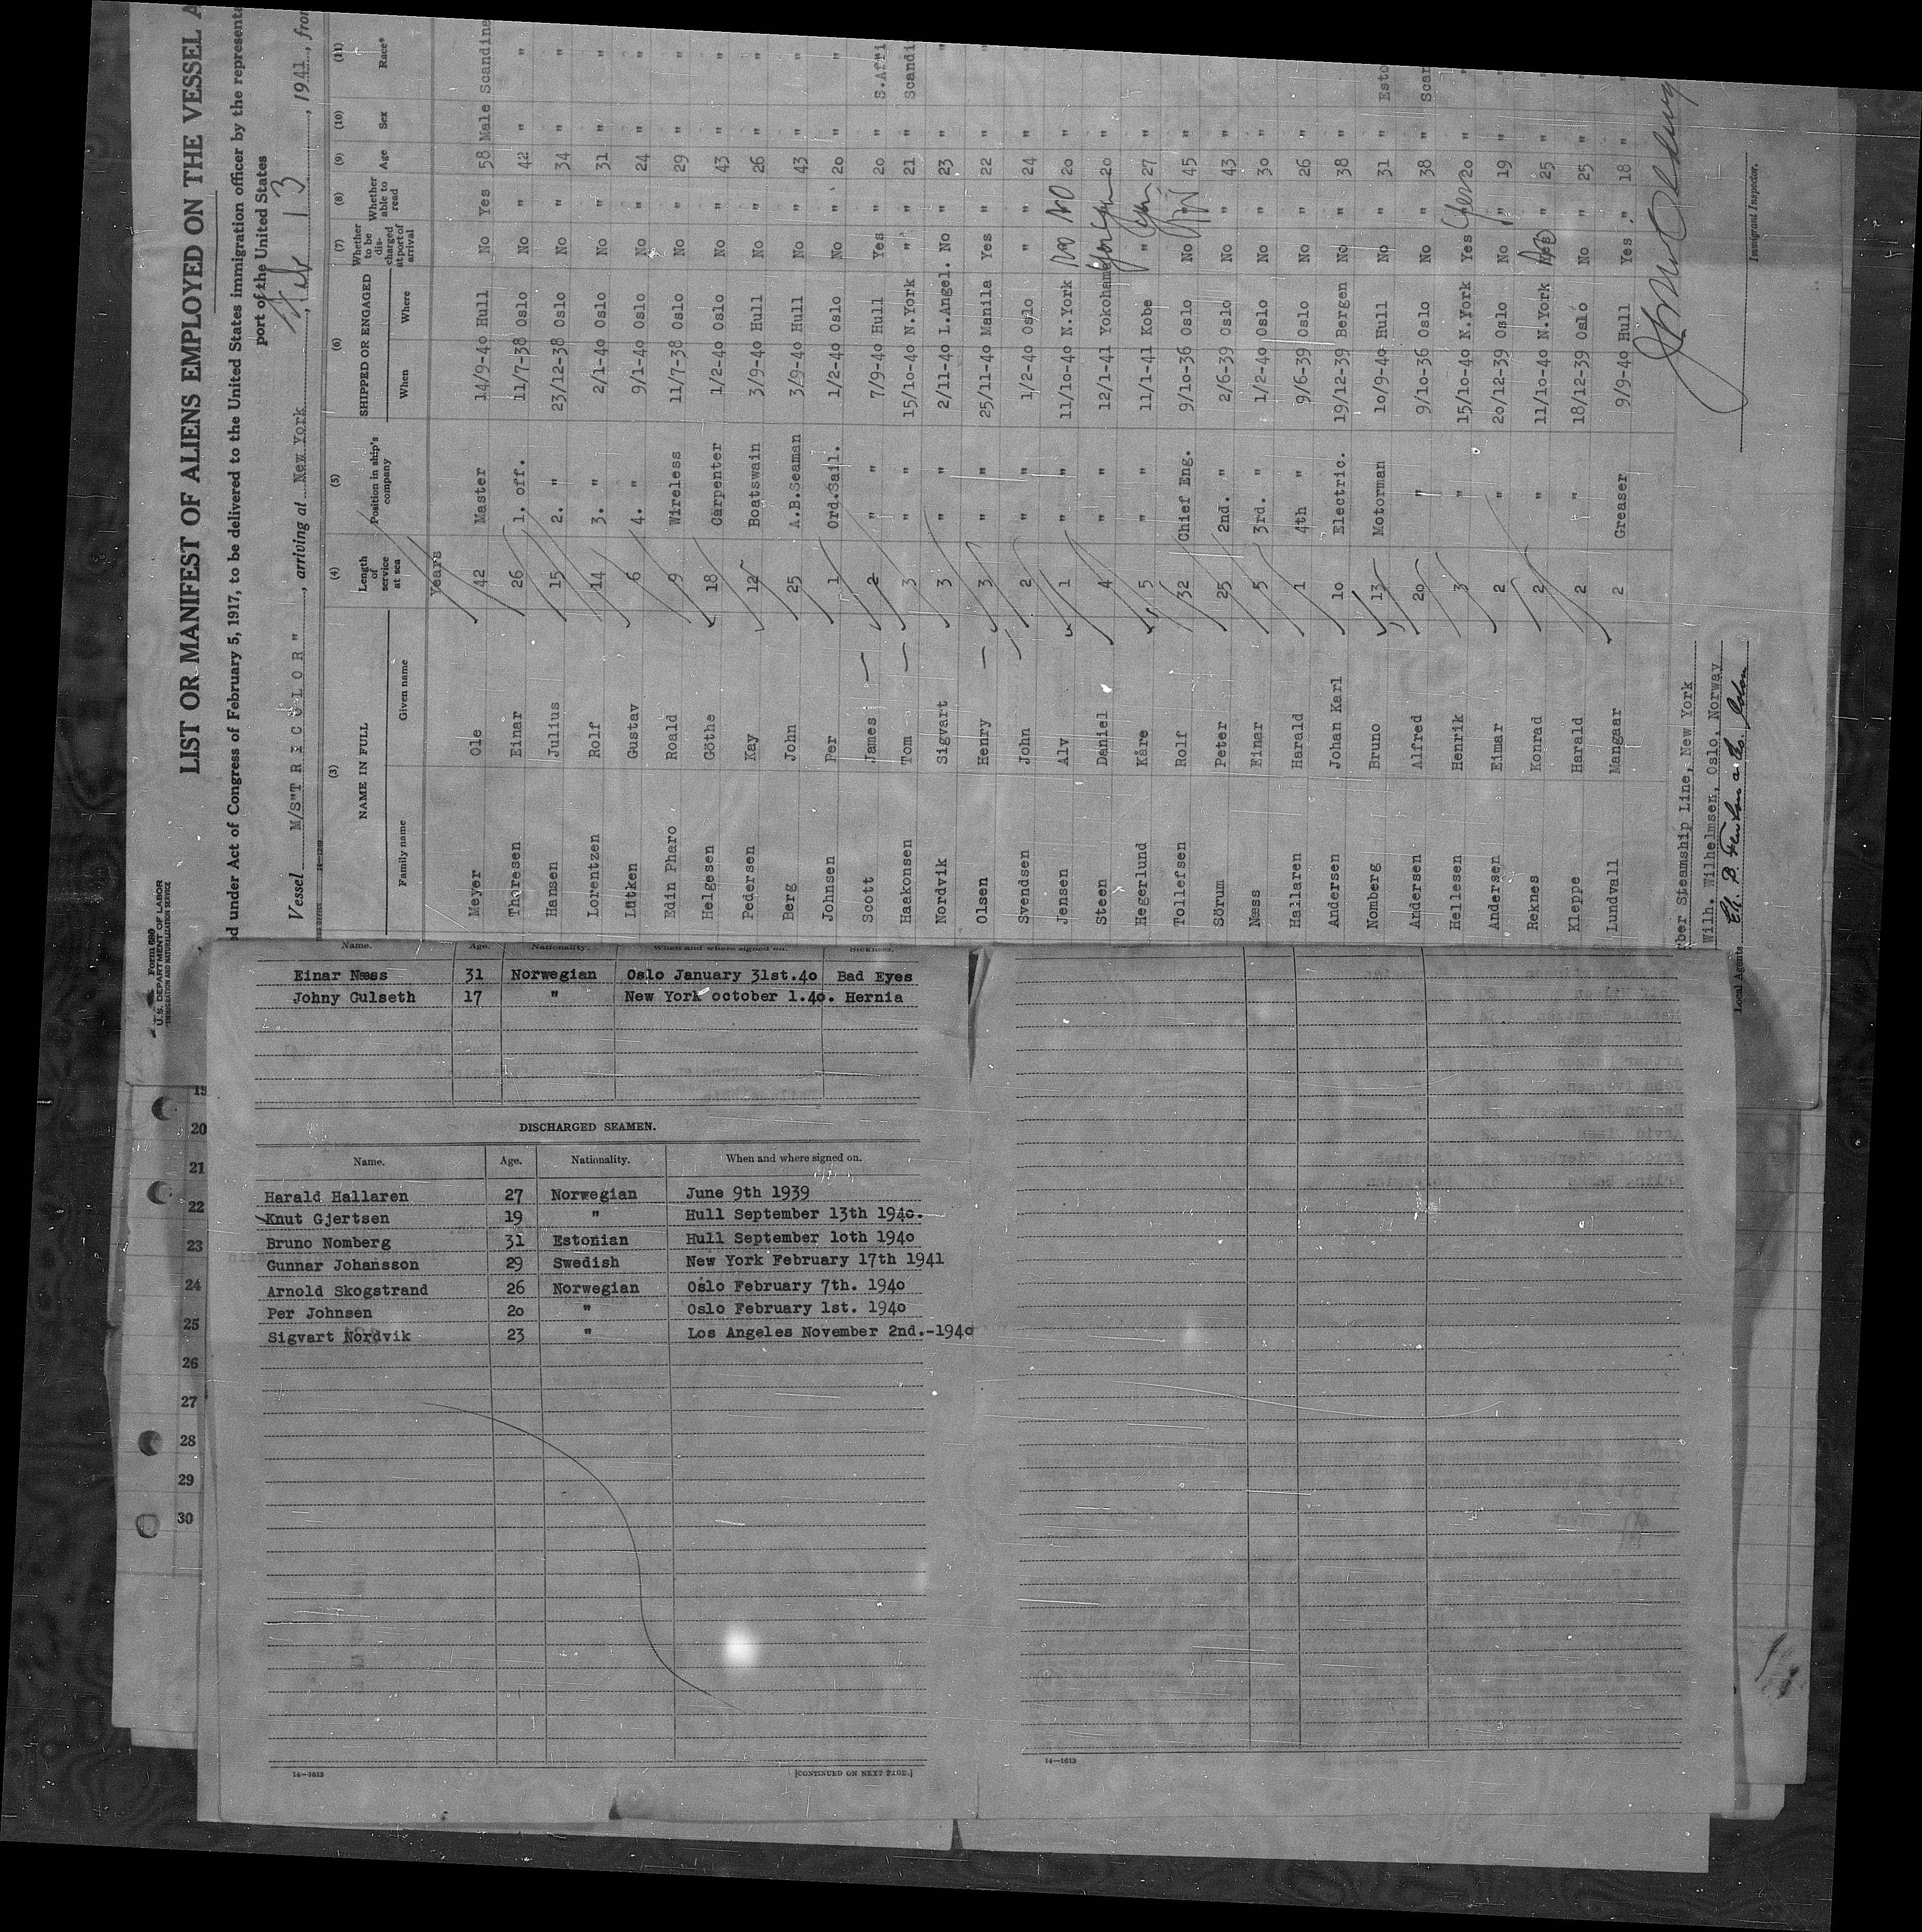 Form 680
U. S. DEPARTMENT OF LABOR
IMMIGRATION AND NATURALIZATION SERVICE
LIST OR MANIFEST OF ALIENS EMPLOYED ON THE VESSEL A
ed under Act of Congress of February 5, 1917, to be delivered to the United States immigration officer by the represent
port of the United States
Vessel M/S"TRICOLOR", arriving at New York, Feb 13, 1941, from
(3) (4) (5) (6) (7) (8) (9) (10) (11)
NAME IN FULL Length of service at sea Position in ship's company SHIPPED OR ENGAGED Whether to be discharged at port of arrival Whether able to read Age Sex Race*
Family name Given name When Where
Years
Meyer Ole 42 Master 14/9-40 Hull No Yes 58 Male Scandina
Thoresen Einar 26 1. off. 11/7-38 Oslo No " 42 " "
Hansen Julius 15 2. " 23/12-38 Oslo No " 34 " "
Lorentzen Rolf 14 3. " 2/1-40 Oslo No " 31 " "
Lütken Gustav 6 4. " 9/1-40 Oslo No " 24 " "
Edin Pharo Roald 9 Wireless 11/7-38 Oslo No " 29 " "
Helgesen Göthe 18 Carpenter 1/2-40 Oslo No " 43 " "
Pedersen Kay 12 Boatswain 3/9-40 Hull No " 26 " "
Berg John 25 A.B.Seaman 3/9-40 Hull No " 43 " "
Johnsen Per 1 Ord.Sail. 1/2-40 Oslo No " 20 " "
Scott James 2 " " 7/9-40 Hull Yes " 20 " S.Afri
Haakonsen Tom 3 " " 15/10-40 N.York " " 21 " Scandi
Nordvik Sigvart 3 " " 2/11-40 L.Angel. No " 23 " "
Olsen Henry 3 " " 25/11-40 Manila Yes " 22 " "
Svendsen John 2 " " 1/2-40 Oslo " " 24 " "
Jensen Alv 1 " " 11/10-40 N.York No No 20 " "
Steen Daniel 4 " " 12/1-41 Yokohama 20 " "
Hegerlund Kåre 5 " " 11/1-41 Kobe " 27 " "
Tollefsen Rolf 32 Chief Eng. 9/10-36 Oslo No " 45 " "
Sörum Peter 25 2nd. " 2/6-39 Oslo No " 43 " "
Næss Einar 5 3rd. " 1/2-40 Oslo No " 30 " "
Hallaren Harald 1 4th " 9/6-39 Oslo No " 26 " "
Andersen Johan Karl 10 Electric. 19/12-39 Bergen No " 38 " "
Nomberg Bruno 13 Motorman 10/9-40 Hull No " 31 " Esto
Andersen Alfred 20 " 9/10-36 Oslo No " 38 " Scan
Hellesen Henrik 3 " 15/10-40 N.York Yes 20 " "
Andersen Eimar 2 " 20/12-39 Oslo No " 19 " "
Reknes Konrad 2 " 11/10-40 N.York No " 25 " "
Kleppe Harald 2 " 18/12-39 Oslo No " 25 " "
Lundvall Mangaar 2 Greaser 9/9-40 Hull Yes " 18 " "
ber Steamship Line, New York
Wilh. Wilhelmsen, Oslo, Norway
Local Agents
Immigrant Inspector.
Name. Age. Nationality. When and where signed on. Sickness.
Einar Næss 31 Norwegian Oslo January 31st.40 Bad Eyes
Johny Gulseth 17 " New York october 1.40. Hernia
DISCHARGED SEAMEN.
Name. Age. Nationality. When and where signed on.
Harald Hallaren 27 Norwegian June 9th 1939
Knut Gjertsen 19 " Hull September 13th 1940.
Bruno Nomberg 31 Estonian Hull September 10th 1940
Gunnar Johansson 29 Swedish New York February 17th 1941
Arnold Skogstrand 26 Norwegian Oslo February 7th. 1940
Per Johnsen 20 " Oslo February 1st. 1940
Sigvart Nordvik 23 " Los Angeles November 2nd.-1940
14—1613
[CONTINUED ON NEXT PAGE.]
14—1613
19
20
21
22
23
24
25
26
27
28
29
30